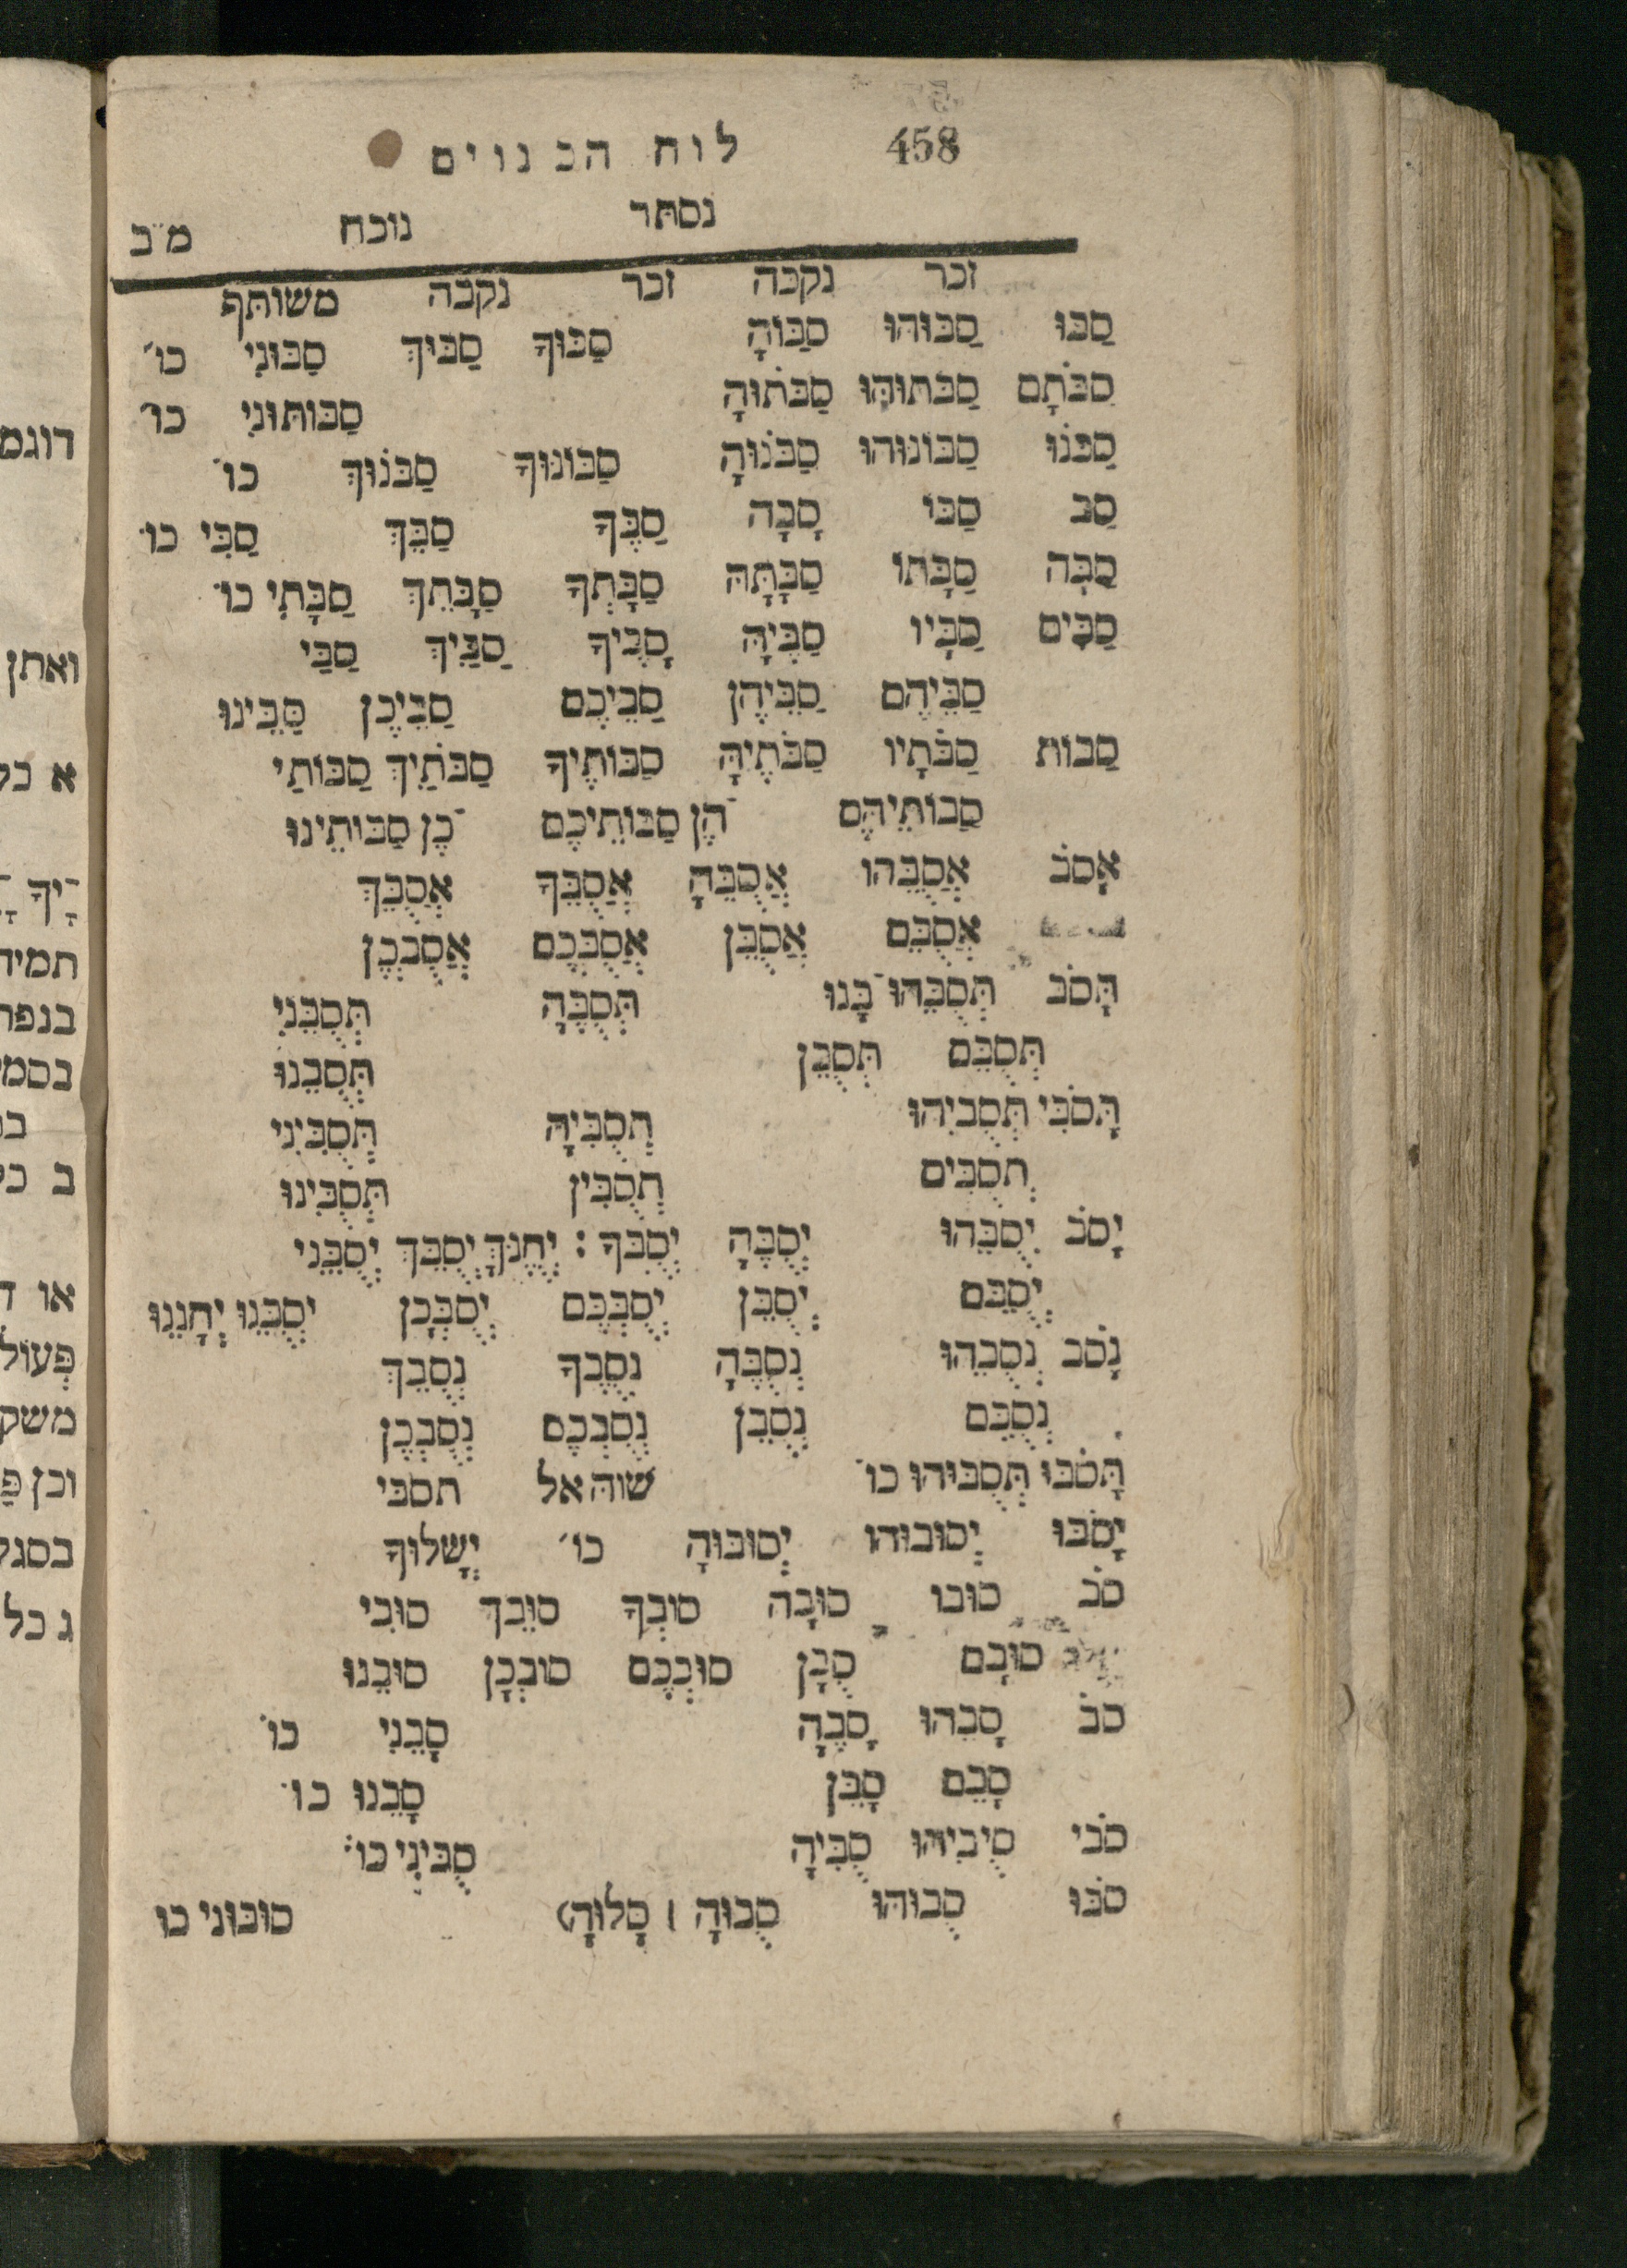 458 לוח הכנוים
נסתר נוכח מ״ב
זכר נקבה זכר נקבה משותף
סַבּוּ סַבּוּהוּ סַבּוּהָ סַבּוּךָ סַבּוּךְ סַבּוּנִי כו׳
סַבֹּתֶם סַבֹּתוּהוּ סַבֹּתוּהָ סַבּוֹתוּנִי כו׳
סַבֹּנוּ סַבּוֹנוּהוּ סַבֹּנוּהָ סַבּוֹנוּךָ סַבֹּנוּךְ כו׳
סַב סַבּוֹ סַבָּהּ סַבֶּךָ סַבֵּךְ סַבִּי כו׳
סַבָּה סַבָּתוֹ סַבָּתָהּ סַבָּתְךָ סַבָּתֵךְ סַבָּתִי כו׳
סַבִּים סַבָּיו סַבֶּיהָ סַבֶּיךָ סַבַּיִךְ סַבַּי
סַבֵּיהֶם סַבֵּיהֶן סַבֵּיכֶם סַבֵּיכֶן סַבֵּינוּ
סַבּוֹת סַבֹּתָיו סַבֹּתֶיהָ סַבּוֹתֶיךָ סַבֹּתַיִךְ סַבּוֹתַי
סַבּוֹתֵיהֶם ־הֶן סַבּוֹתֵיכֶם ־כֶן סַבּוֹתֵינוּ
אָסֹב אֲסֻבֵּהוּ אֲסֻבֶּהָ אֲסֻבֶּךָ אֲסֻבֵּךְ
אֲסֻבֵּם אֲסֻבֵּן אֲסֻבְּכֶם אֲסֻבְּכֶן
תָּסֹב תְּסֻבֵּהוּ־בֶּנּוּ תְּסֻבֶּהָ תְּסֻבֵּנִי
תְּסֻבֵּם תְּסֻבֵּן תְּסֻבֵּנוּ
תָּסֹבִּי תְּסֻבִּיהוּ תְסֻבִּיהָ תְּסֻבִּינִי
תְסֻבִּים תְסֻבִּין תְּסֻבִּינוּ
יָסֹב יְסֻבֵּהוּ יְסֻבֶּהָ יְסֻבֶּךָ : יְחֻנֶּךָּ יְסֻבֵּךְ יְסֻבֵּנִי
יְסֻבֵּם יְסֻבֵּן יְסֻבְּכֶם יְסֻבְּכֶן יְסֻבֵּנוּ יְחָנֵּנוּ
נָסֹב נְסֻבֵּהוּ נְסֻבֶּהָ נְסֻבֶּךָ נְסֻבֵּךְ
נְסֻבֵּם נְסֻבֵּן נְסֻבְּכֶם נְסֻבְּכֶן
תָּסֹבּוּ תְּסֻבּוּהוּ כו׳ שׁוה אל תסבי
יָסֹבּוּ יְסוּבּוּהוּ יְסוּבּוּהָ כו׳ יְשָׁלּוּךָ
סֹב סוּבּוֹ סוּבָּהּ סוּבְּךָ סוּבֵּךְ סוּבִּי
סוּבָּם סֻבָּן סוּבְּכֶם סוּבְּכֶן סוּבֵּנוּ
סֹב סָבֵּהוּ סָבֶּהָ סָבֵּנִי כו׳
סָבֵּם סָבֵּן סָבֵּנוּ כו׳
סֹבִּי סֻיבִּיהוּ סֻבִּיהָ סֻבִּינִי כו׳
סֹבּוּ סֻבּוּהוּ סֻבּוּהָ (סָלּוּהָ) סוּבּוּנִי כו